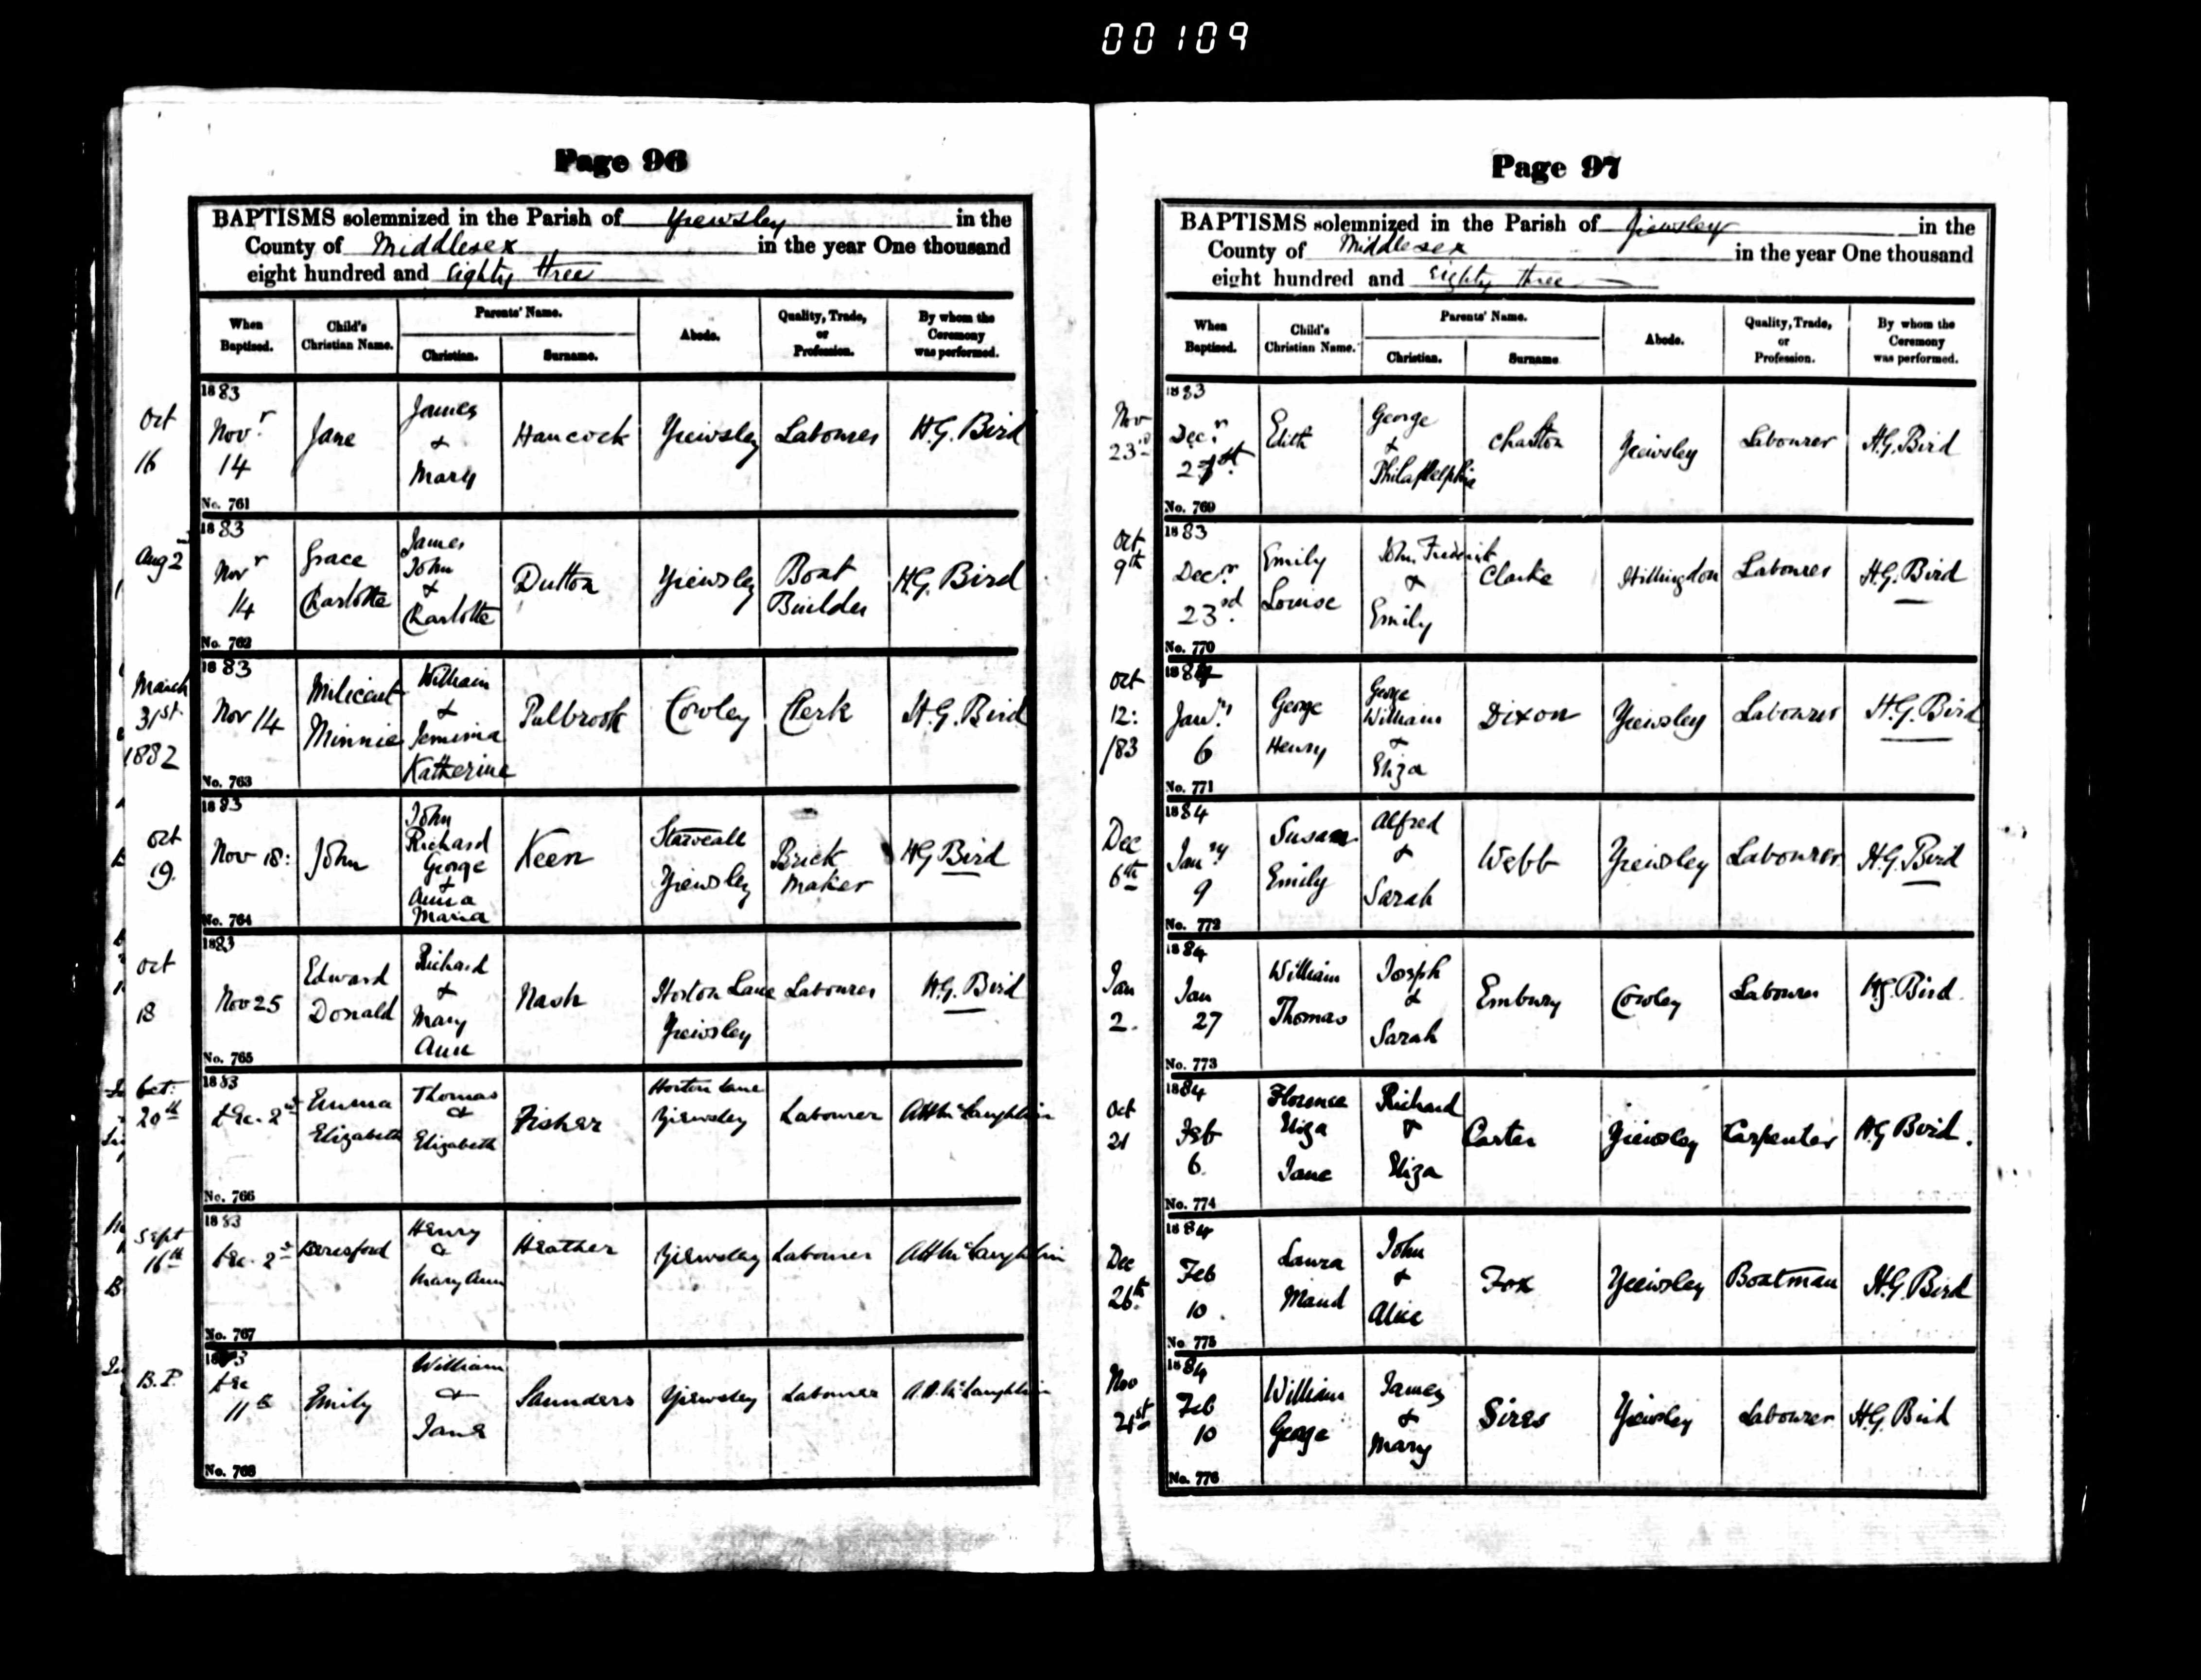 00109
Page 96
BAPTISMS solemnized in the Parish of Yiewsley in the
County of Middlesex in the year One thousand
eight hundred and Eighty three
When Baptized. Child's Christian Name. Parents' Name. Christian. Surname. Abode. Quality, Trade, or Profession. By whom the Ceremony was performed.
Oct 16 1883 Novr 14 Jane James & Mary Hancock Yiewsley Labourer H.G. Bird
No. 761
Aug 2 1883 Novr 14 Grace Charlotte James John & Charlotte Dutton Yiewsley Boat Builder H.G. Bird
No. 762
March 31st 1882 1883 Nov 14 Milicent Minnie William & Jemima Katherine Pulbrook Cowley Clerk H.G. Bird
No. 763
Oct 19. 1883 Nov 18: John John Richard George & Anna Maria Keen Starveall Yiewsley Brick Maker H.G Bird
No. 764
Oct 18 1883 Nov 25 Edward Donald Richard & Mary Ann Nash Horton Lane Yiewsley Labourer H.G. Bird
No. 765
Oct: 20th 1883 Dec. 2nd Emma Elizabeth Thomas & Elizabeth Fisher Horton Lane Yiewsley Labourer McLaughlin
No. 766
Sept 16th 1883 Dec. 2nd Beresford Henry & Mary Ann Heather Yiewsley Labourer McLaughlin
No. 767
B.P. 1883 Dec 11th Emily William & Jane Saunders Yiewsley Labourer McLaughlin
No. 768
Page 97
BAPTISMS solemnized in the Parish of Yiewsley in the
County of Middlesex in the year One thousand
eight hundred and Eighty three
When Baptized. Child's Christian Name. Parents' Name. Christian. Surname. Abode. Quality, Trade, or Profession. By whom the Ceremony was performed.
Nov 23rd 1883 Decr 21st Edith George & Philadelphia Charlton Yiewsley Labourer H.G. Bird
No. 769
Oct 9th 1883 Decr 23rd. Emily Louise John Frederick & Emily Clarke Hillingdon Labourer H.G. Bird
No. 770
Oct 12: /83 1884 Jany 6 George Henry George William & Eliza Dixon Yiewsley Labourer H.G. Bird
No. 771
Dec 6th 1884 Jany 9 Susan Emily Alfred & Sarah Webb Yiewsley Labourer H.G. Bird
No. 772
Jan 2. 1884 Jan 27 William Thomas Joseph & Sarah Embury Cowley Labourer H.G. Bird
No. 773
Oct 21 1884 Feb 6. Florence Eliza Jane Richard & Eliza Carter Yiewsley Carpenter H.G Bird.
No. 774
Dec 26th. 1884 Feb 10. Laura Maud John & Alice Fox Yiewsley Boatman H.G. Bird
No 775
Nov 21st 1884 Feb 10 William George James & Mary Sires Yiewsley Labourer H.G. Bird
No. 776